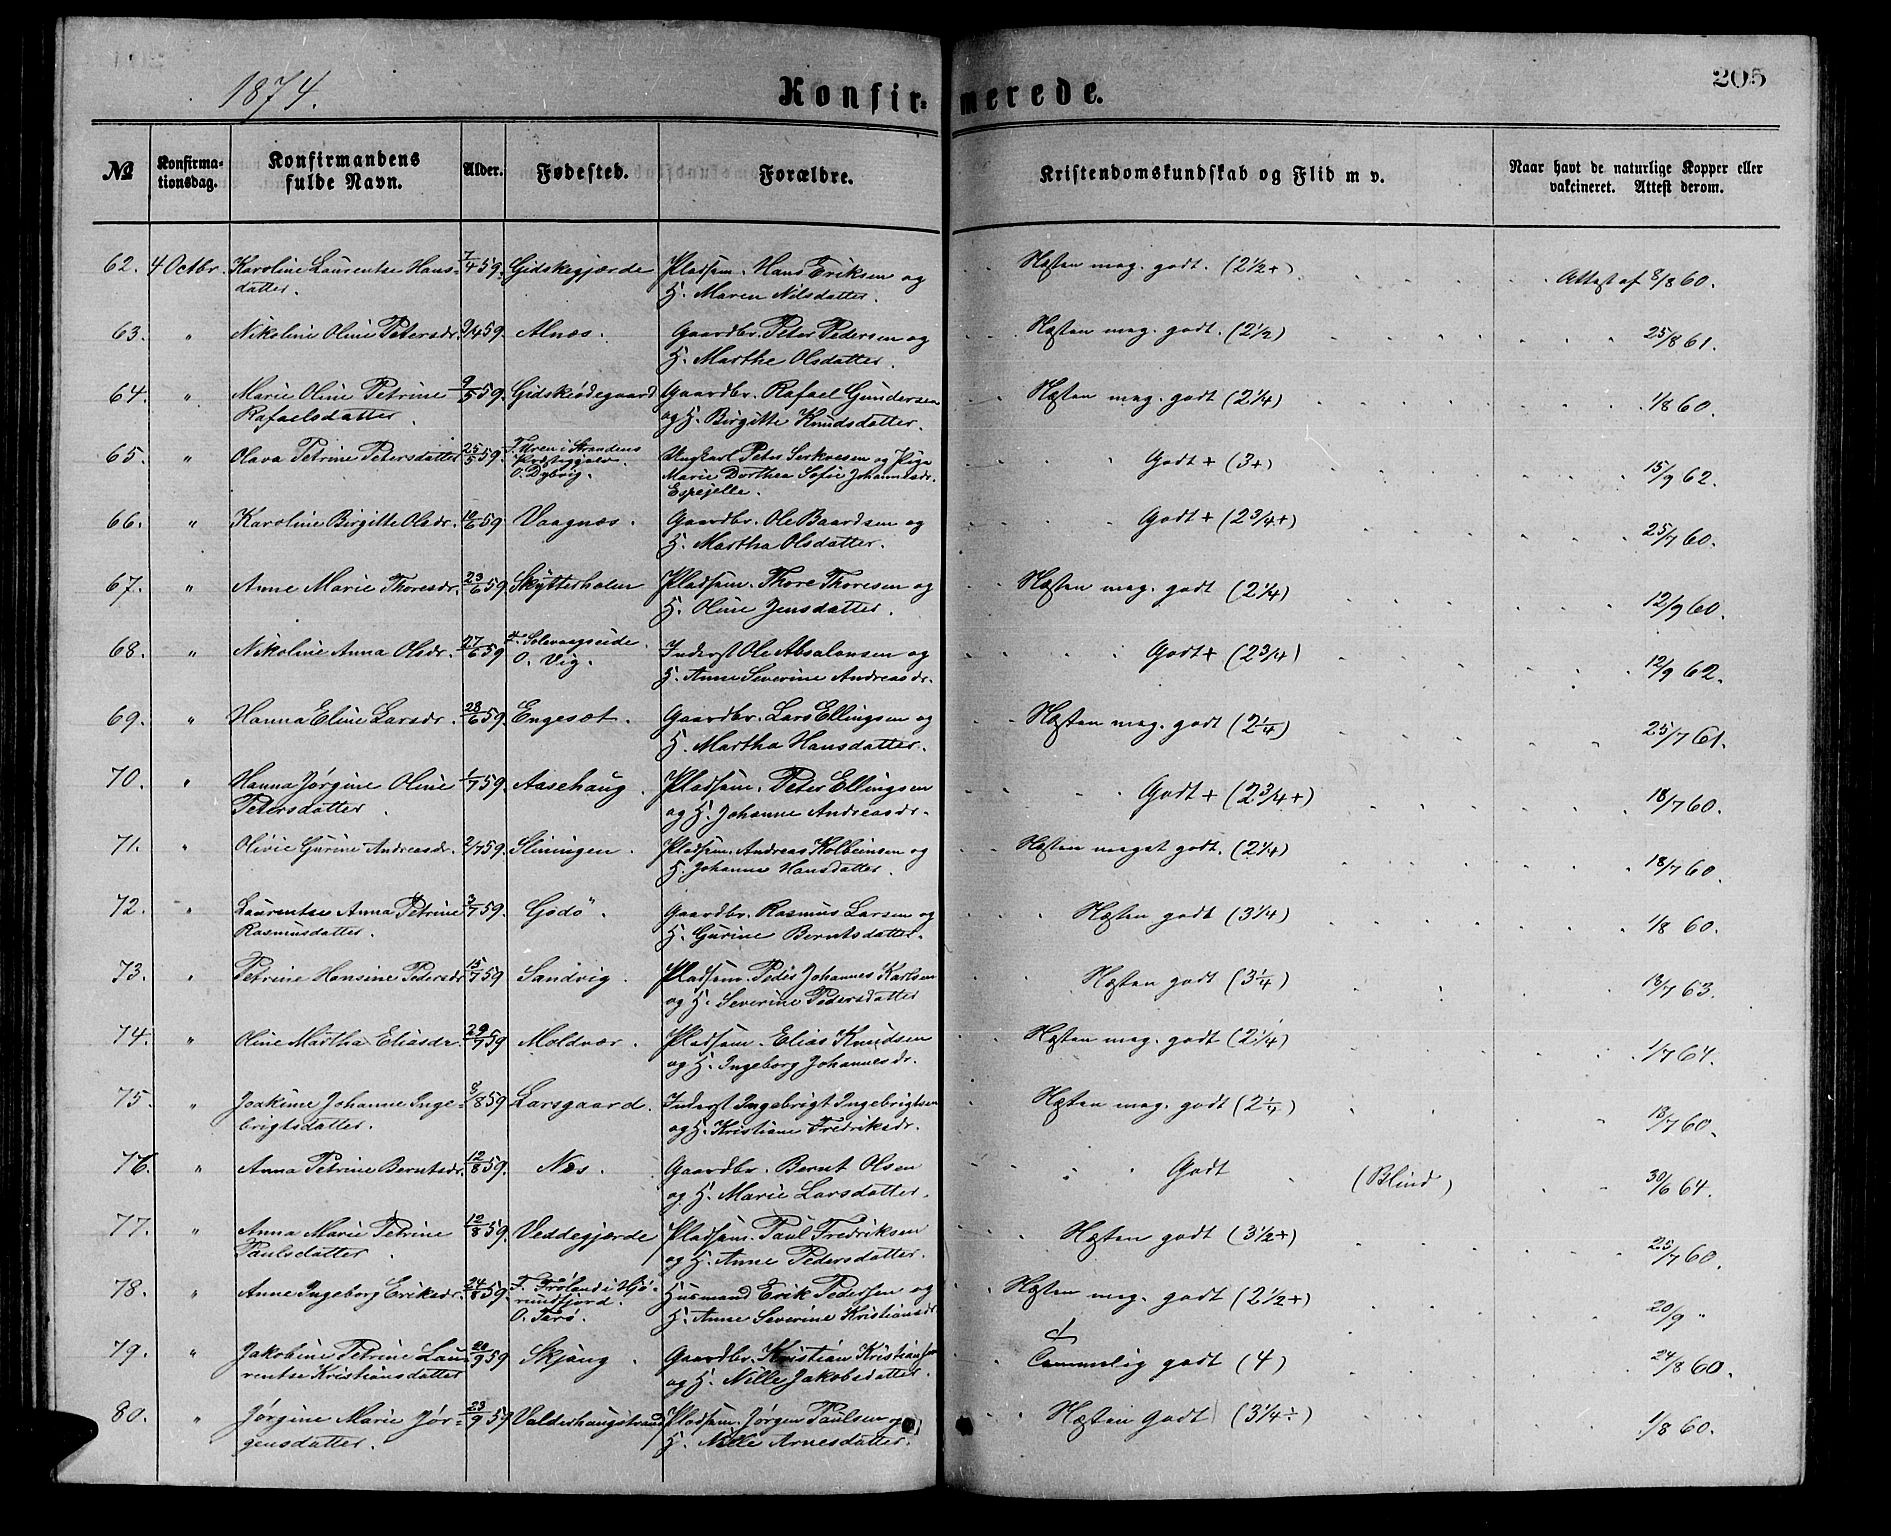 1874. Konfirmerede. 205
№ Konfirmationsdag. Konfirmandens fulde Navn. Alder. Fødested. Forældre. Kristendomskundskab og Flid m v. Naar havt de naturlige Kopper eller vakcineret. Attest derom.
62. 4 Octbr. Karoline Laurentse Hans- 7/4 59. Gidskegjærde Pladsm. Hans Eriksen og Næsten meg. godt. (2½+) Attest af 8/8 60.
datter. H. Maren Nilsdatter.
63. " Nikoline Oline Petersdr. 9/4 59. Alnæs. Gaardbr. Peter Pedersen og Næsten meg. godt. (2½) 25/8 61.
H. Marthe Olsdatter.
64. " Marie Oline Petrine 9/5 59. Gidskeødegaard Gaardbr. Rafael Gundersen Næsten meg. godt (2¼) 1/8 60.
Rafaelsdatter. og H. Birgitte Knudsdatter.
65. " Olava Petrine Petersdatter 25/5 59. F. Uren i Strandens Ungkarl Peter og Pige Godt + (3+) 15/9 62.
Præstegjæld. Marie Dorthea Sofie Johannesdr.
O. Dybvig. Espejelle.
66. " Karoline Birgitte Olsdr. 10/6 59. Vaagnæs. Gaardbr. Ole Baardsen og Godt + (2¾+) 25/7 60.
H. Martha Olsdatter.
67. " Anne Marie Thoresdr. 23/6 59. Skytterholm Pladsm. Thore Thoresen og Næsten meg. godt (2¼) 12/9 60.
H. Oline Jensdatter.
68. " Nikoline Anna Olsdr. 27/6 59 F. Solevaagseide. Inderst Ole Absalonsen og Godt + (2¾) 12/9 62.
O. Vig. H. Anne Severine Andreasdr.
69. " Hanna Eline Larsdr. 28/6 59. Engesæt. Gaardbr. Lars Ellingsen og Næsten meg. godt (2¼) 25/7 61.
H. Martha Hansdatter.
70. " Hanna Jørgine Oline 1/7 59. Aasehaug. Pladsm. Peter Ellingsen Godt + (2¾+) 18/7 60.
Petersdatter. og H. Johanne Andreasdr.
71. " Olivie Gurine Andreasdr. 2/7 59. Slinningen. Pladsm. Andreas Kolbeinsen og Næsten meget godt. (2¼) 18/7 60.
H. Johanne Hansdatter.
72. " Laurentse Anna Petrine 3/7 59. Godø. Gaardbr. Rasmus Larsen og Næsten godt (3¼) 1/8 60.
Rasmusdatter. H. Gurine Berntsdatter.
73. " Petrine Hansine Pedersdr 15/7 59. Sandvig. Pladsm. Peder Johannes Karlsen Næsten godt (3¼) 13/7 63.
og H. Severine Pedersdatter
74. " Oline Martha Eliasdr. 29/7 59 Moldvær. Pladsm. Elias Knudsen Næsten meg. godt (2¼) 1/7 64.
og H. Ingeborg Johannesdr.
75. " Joakime Johanne Inge- 8/8 59 Larsgaard. Inderst Ingebrigt Ingebrigtsen Næsten meg. godt (2¼) 18/7 60.
brigtsdatter. og H. Kristiane Fredriksdr.
76. " Anna Petrine Berntsdr. 12/8 59. Næs. Gaardbr. Bernt Olsen Godt (Blind) 30/6 64.
og H. Marie Larsdatter.
77. " Anna Marie Petrine 12/8 59. Veddegjærde Pladsm. Paul Fredriksen Næsten godt (3½+) 25/7 60.
Paulsdatter. og H. Anne Pedersdatter.
78. " Anne Ingeborg Eriksdr. 24/8 59. F. Frøland i Hjø- Husmand Erik Pedersen og Næsten meg. godt (2½+) 20/9 "
rundfjord. H. Anne Severine Kristiansdr
O. Tarø.
79. " Jakobine Petrine Lau- 20/9 59 Skjong. Gaardbr. Kristian Kristiansen Temmelig godt (4) 24/8 60.
rentse Kristiansdatter og H. Nille Jakobsdatter.
80. " Jørgine Marie Jør- 23/9 59 Valderhaugstrand Pladsm. Jørgen Paulsen og Næsten Godt (3¼÷) 1/8 60.
gensdatter. H. Nille Arnesdatter.